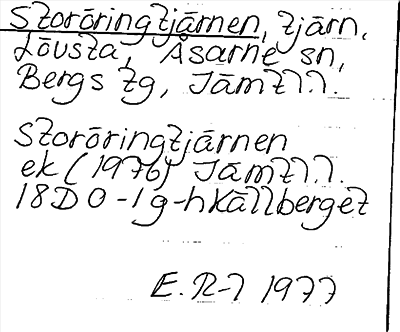 Storöringtjärnen, tjärn,
Lövsta, Åsarne sn,
Bergs tg, Jämtl.l.
Storöringtjärnen
ek (1976) Jämtl.l.
18D 0-1g-h Källberget
E. R-l 1977